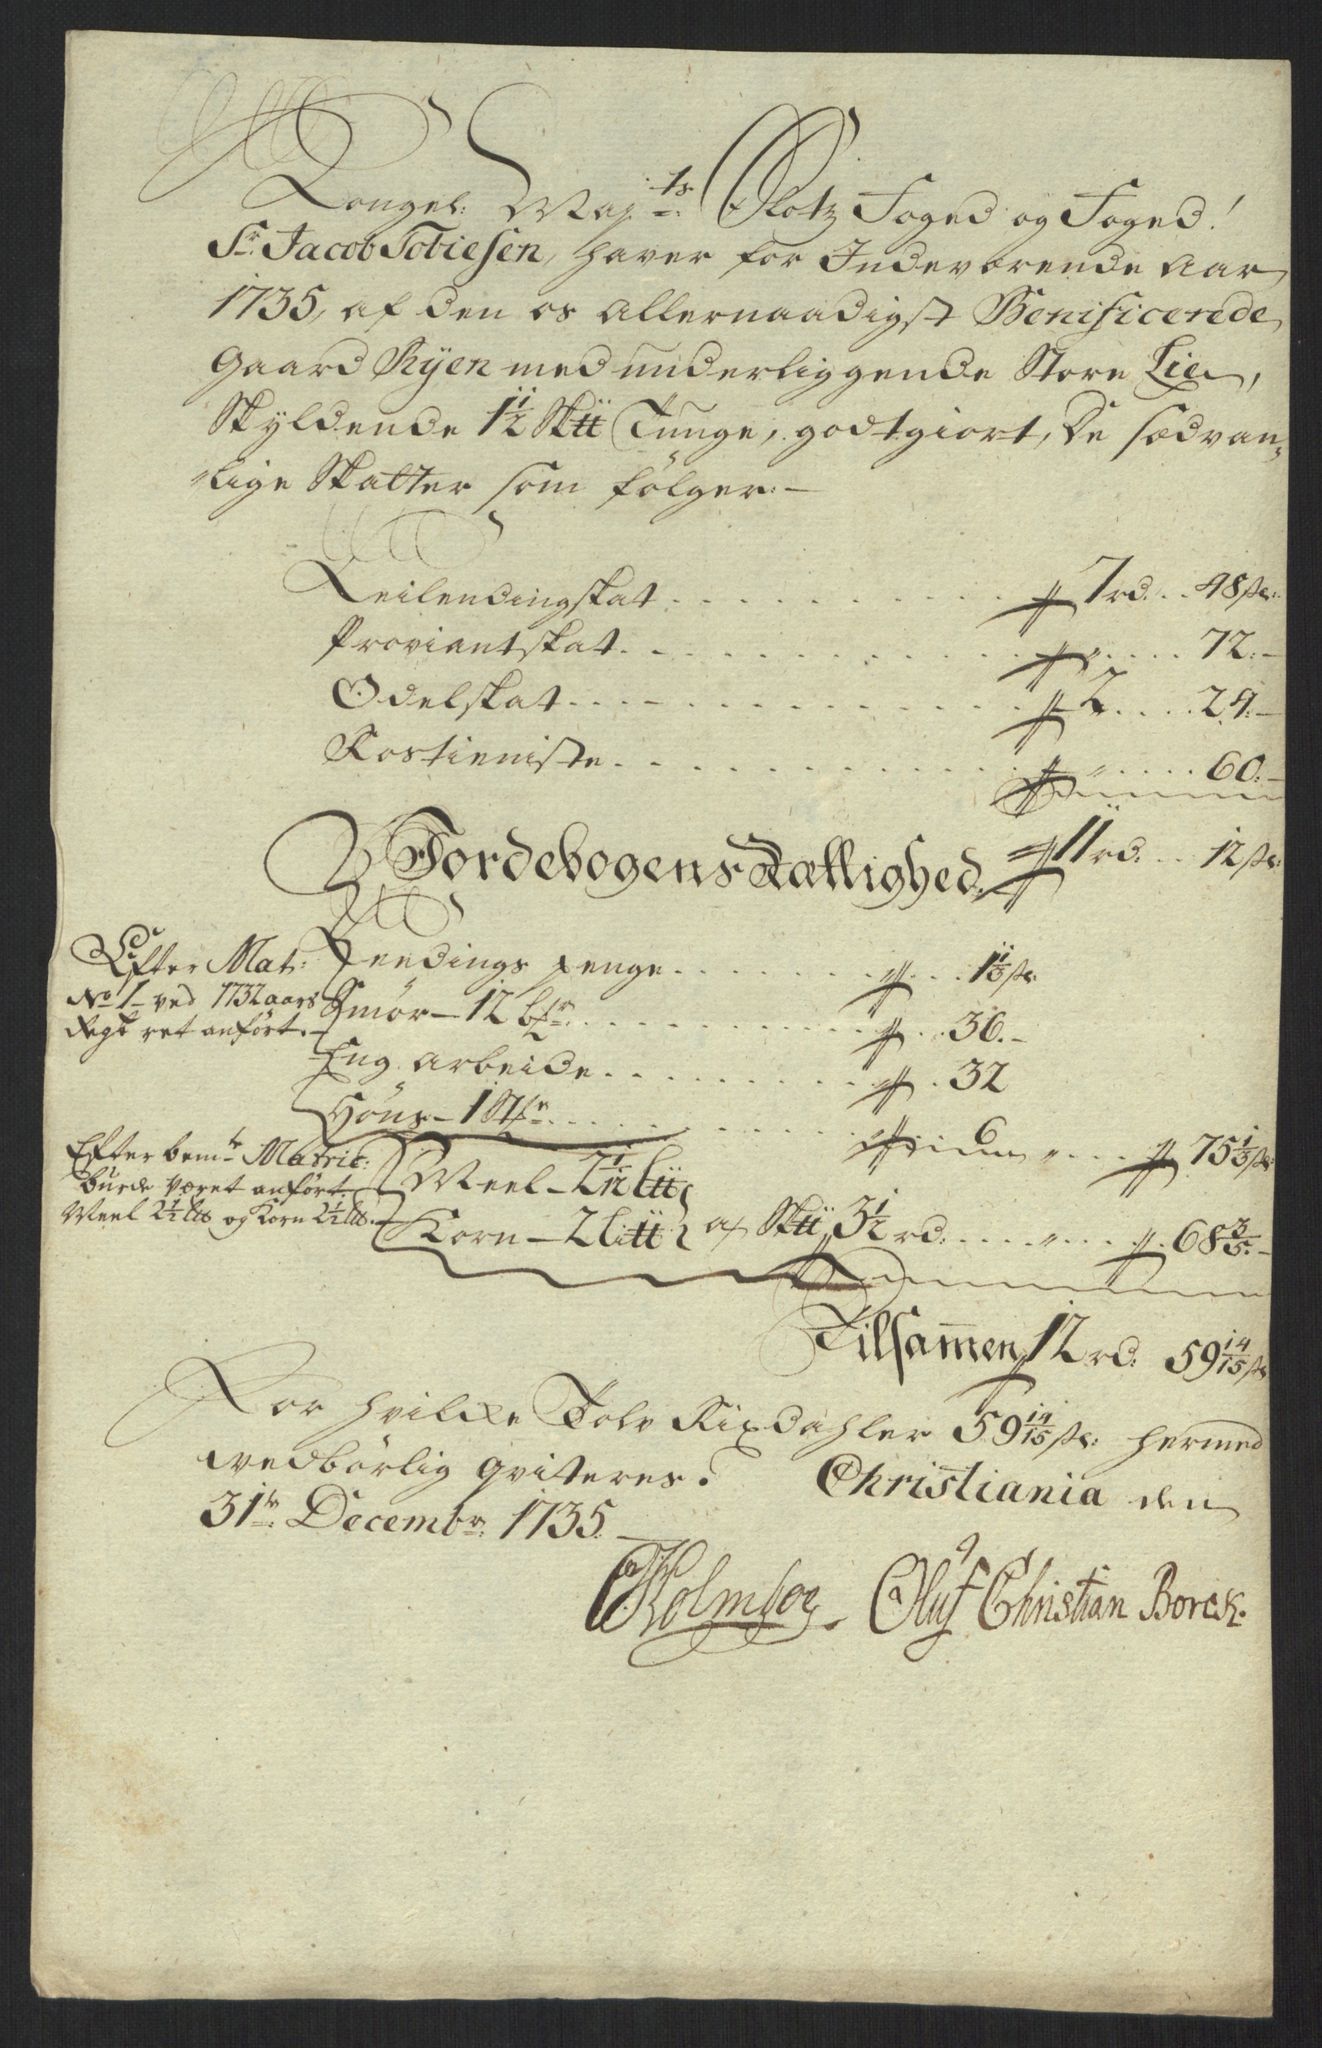 Kongel: Maj:ts Slotz Foged og Foged!
Sr: Jacob Tobiesen, haver for Indeværende Aar
1735, af den os allernaadigst Benificerede
Gaard Ryen med underliggende Store Lie,
Skyldende 1 1/2 Sk℔ Tunge, godtgiort, De sædvan-
lige Skatter som følger:-
Leilendingskat . . . 7 rd. . 48 sk:
Proviantskat . . . " . . . 72:-
Odelskat . . . 2 . . . 24:-
Rostieniste . . . " . . . 60:-
11 rd: . . 12 sk:
Jordebogens Rættighed.
Efter Mat: No 1 ved 1732 aars Regsk: ret anført.
Leedings penge . . . 1 1/3 sk:
Smør - 12 . . . 36.-
Eng arbeide . . . 32
Høns - 1 Stk: . . . 6 . . . 75 1/3 sk:
Efter bemte Matric: burde været anført. Meel 2 1/2 L℔ og Korn 2 1/2 L℔.
Meel - 2 1/2 L℔
Korn - 2 Li℔ af Sk℔ 3 1/2 rd: . . . " . . . 68 3/5.-
Tilsam̄en 12 rd: 59 14/15 sk
For hvilcke Tolv Rixdahler 59 14/15 sk: hermed
vedbørlig qviteres. Christiania den
31te: Decembr: 1735.
Holmboe. Oluf Christian Borck.